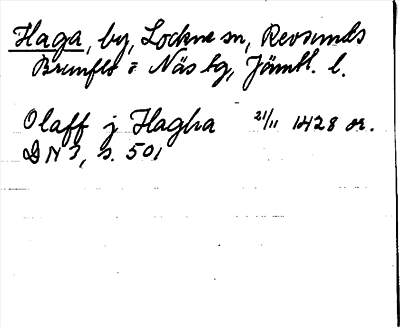 Haga, by, Lockne sn, Revsunds
Brunflo o Näs tg, Jämtl. l.
Olaff j Hagha 21/11 1428 or.
DN 3, s. 501